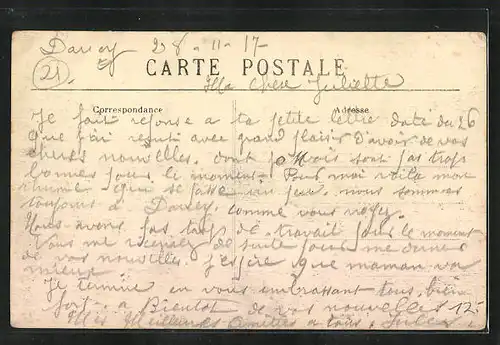 Dancy 28-11-17
21.
CARTE POSTALE
Ma chère Juliette
Correspondance
Adresse
Je fait reponse a ta petite lettre daté du 26
que j'ai reçuti avec grand plaisir d'avoir de vos
cheres nouvelles. dont je vois sont pas trop
bonnes pour le moment. Pour moi voilà mon
rhume qui se passe un peu. nous sommes
toujours a Dancy, comme vous voyez.
Nous avons pas tant de travail pour le moment
Vous me de suite pour me donner
de vos nouvelles. j'espère que maman va
mieux.
Je termine en vous embrassant tous bien
fort. a Bientot de vos nouvelles 12
Mes Meilleures amitiés a tous, Jules